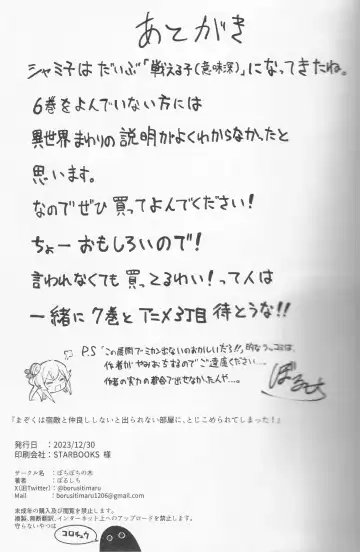 あとがき
シャミ子はだいぶ「戦える子(意味深)」になってきたね。
6巻をよんでいない方には
異世界まわりの説明がよくわからなかったと
思います。
なのでぜひ買ってよんでください!
ちょーおもしろいので!
言われなくても買ってるわい!って人は
一緒に7巻とアニメ3丁目待とうな!!
P.S「この展開でミカン出ないのおかしいだろ!!」的なツッコミは、
作者がやみおちするのでご遠慮ください…
作者の実力の都合で出せなかった人や…。
ぼるしち
『まぞくは宿敵と仲良ししないと出られない部屋に、とじこめられてしまった!』
発行日 : 2023/12/30
印刷会社 : STARBOOKS 様
サークル名 : ぼちぼちの木
著者 : ぼるしち
X(旧Twitter) : @borusitimaru
Mail : borusitimaru1206@gmail.com
未成年の購入及び閲覧を禁止します。
複製、無断翻訳、インターネット上へのアップロードを禁止します。
守らないやつは
コロチュウ